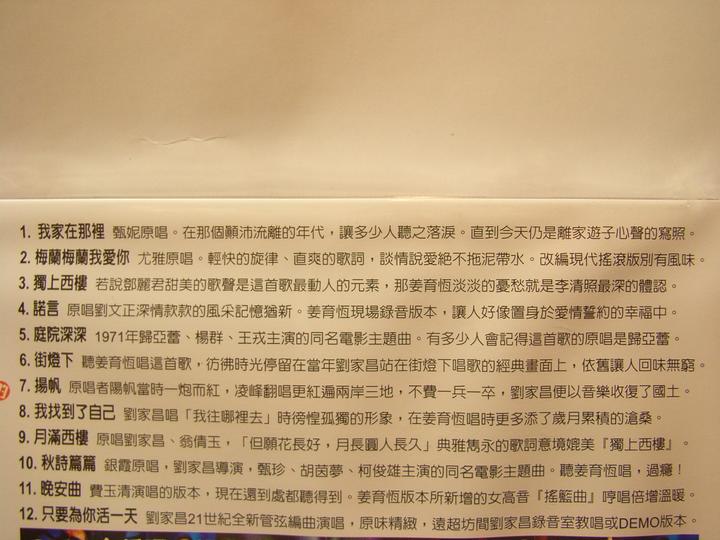 1. 我家在那裡 甄妮原唱。在那個顛沛流離的年代，讓多少人聽之落淚。直到今天仍是離家遊子心聲的寫照。
2. 梅蘭梅蘭我愛你 尤雅原唱。輕快的旋律、直爽的歌詞，談情說愛絕不拖泥帶水。改編現代搖滾版別有風味。
3. 獨上西樓 若說鄧麗君甜美的歌聲是這首歌最動人的元素，那姜育恆淡淡的憂愁就是李清照最深的體認。
4. 諾言 原唱劉文正深情款款的風采記憶猶新。姜育恆現場錄音版本，讓人好像置身於愛情誓約的幸福中。
5. 庭院深深 1971年歸亞蕾、楊群、王戎主演的同名電影主題曲。有多少人會記得這首歌的原唱是歸亞蕾。
6. 街燈下 聽姜育恆唱這首歌，彷彿時光停留在當年劉家昌站在街燈下唱歌的經典畫面上，依舊讓人回味無窮。
7. 揚帆 原唱者陽帆當時一炮而紅，凌峰翻唱更紅遍兩岸三地，不費一兵一卒，劉家昌便以音樂收復了國土。
8. 我找到了自己 劉家昌唱「我往哪裡去」時徬惶孤獨的形象，在姜育恆唱時更多添了歲月累積的滄桑。
9. 月滿西樓 原唱劉家昌、翁倩玉，「但願花長好，月長圓人長久」典雅雋永的歌詞意境媲美『獨上西樓』。
10. 秋詩篇篇 銀霞原唱，劉家昌導演，甄珍、胡茵夢、柯俊雄主演的同名電影主題曲。聽姜育恆唱，過癮！
11. 晚安曲 費玉清演唱的版本，現在還到處都聽得到。姜育恆版本所新增的女高音『搖籃曲』哼唱倍增溫暖。
12. 只要為你活一天 劉家昌21世紀全新管弦編曲演唱，原味精緻，遠超坊間劉家昌錄音室教唱或DEMO版本。